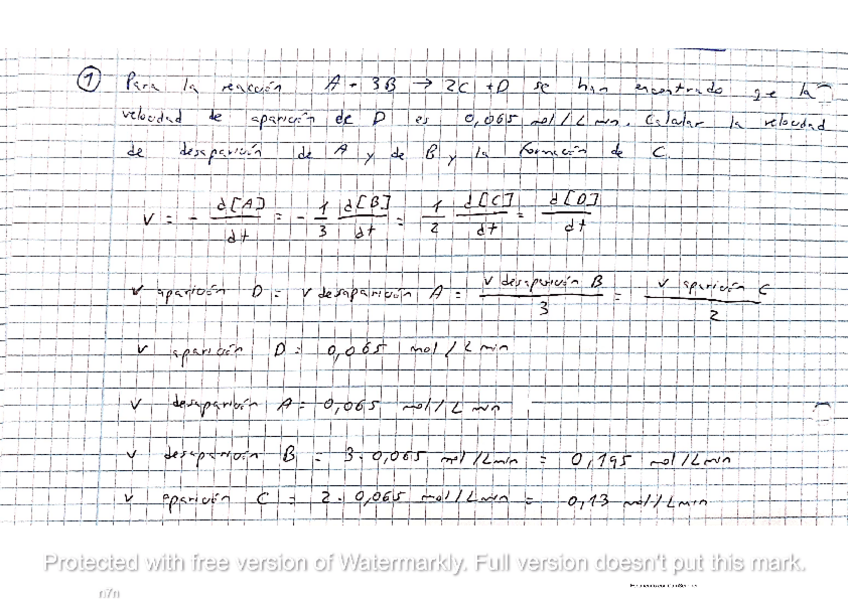 ① Para la reacción A + 3B → 2C + D se han encontrado qe la
velocidad de aparición de D es 0,065 mol/L min. Calcular la velocidad
de desaparición de A y de B y la formación de C.
V = - d[A]/dt = - 1/3 d[B]/dt = 1/2 d[C]/dt = d[D]/dt
v aparición D = v desaparición A = v desaparición B/3 = v aparición C/2
v aparición D = 0,065 mol/L min
v desaparición A = 0,065 mol/L min
v desaparición B = 3 · 0,065 mol/L min = 0,195 mol/L min
v aparición C = 2 · 0,065 mol/L min = 0,13 mol/L min
Protected with free version of Watermarkly. Full version doesn't put this mark.